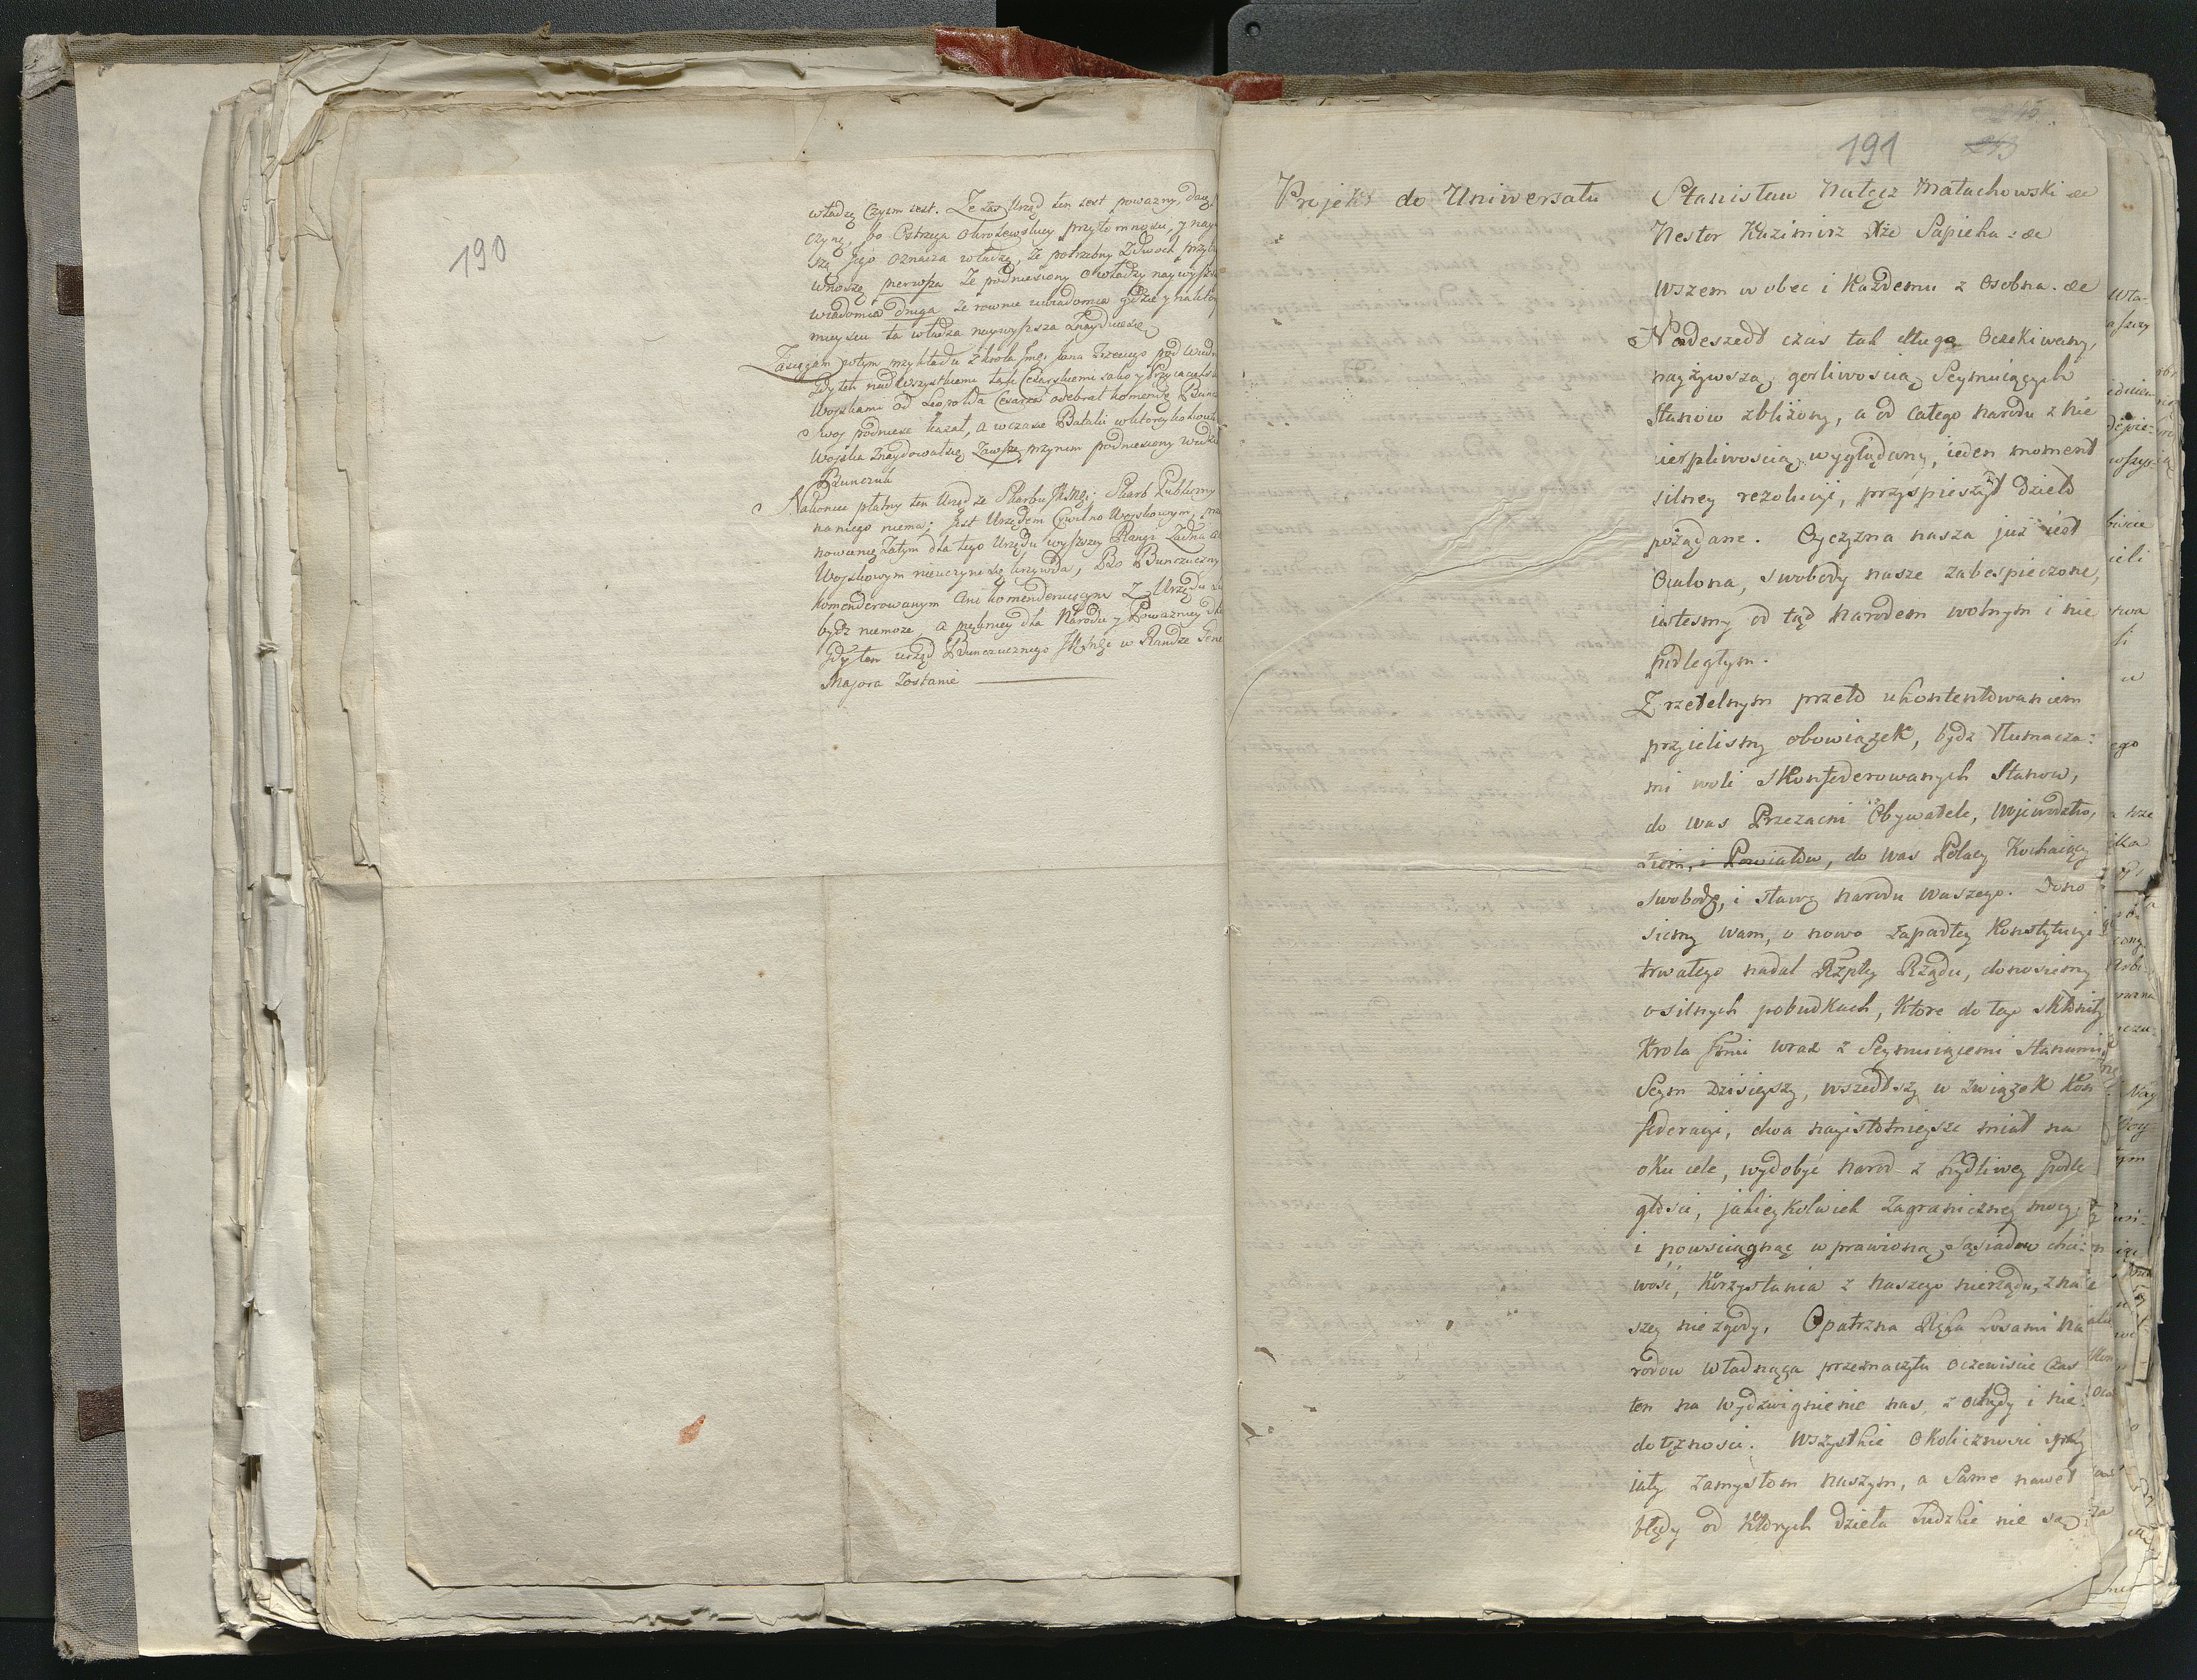 190
władzę czym iest. Ze zas Urząd ten iest powazny, daię
czynę, bo Ostrzega Obrożewsłucy przytomności, y nay
szą Jego oznacza władzę, że potrzebny Zdwoch przy
wnoszę pierwsza Ze podniesiony o władzy naywyższ
wiadomia druga że rownie uwiadomia gdzie y naktor
mieyscu ta władza naywyższa znayduiesię
Zasięgam wtym przykładu z krola Jmci Jana Trzeciego pod Wied
gdy ten nad wszystkiemi tak Cesarskiemi jako y Przyiaciels
Woyskami od Leopolda Cesarza odebrał komendę Bunc
swoy podniesc kazał, a wczasie Batalii wktorey kolwiek
Woyska znaydowałsię zawsze przynim podniesiony widzi
Bunczuk
Nakoniec płatny ten Urząd ze Skarbu JKMci: Skarb Publiczny
naniego niema; Jest Urzędem Cywilno Woyskowym, 
nowienię Zatym dla tego Urzędu wyższey Rangi Zadna
Woyskowym nieuczyni się krzywda, Bo Bunczuczny
komenderowanym Ani komenderuiącym z Urzędu
bydz niemoze, a piękniey dla Narodu y Powazniey
gdy ten urząd Bunczucznego JKMci w Randze Gene
Majora Zostanie
191
Projekt do Uniwersału
Stanisław Nałęcz Małachowski &c
Nestor Kazimirz Xże Sapieha: &c
Wszem w obec i Każdemu z Osobna. &c
Nadeszedł czas tak długo Oczekiwany,
nayżywszą gorliwoscią Seymuiących
Stanow zbliżony, a od całego narodu z nie
cierpliwoscią wyglądany, ieden moment
silney rezolucyi, przyspieszył dzieło
pożądane. Oyczyzna nasza już iest
Ocalona, swobody nasze zabespieczone,
iestesmy od tąd narodem wolnym i nie
podległym.
Z rzetelnym przeto ukontentowaniem
przyielismy obowiązek, bydz Tłumacza:
mi woli Skonfederowanych Stanow,
do was Przezacni Obywatele, Wojewodztw,
Ziem, i Powiatow, do was Polacy Kochaiący
swobodę, i sławę narodu waszego. Dono
siemy wam, o nowo zapadłey Konstytucyi
trwałego nadal Rzptey Rządu, donosiemy
o silnych pobudkach, Ktore do tego skłoniły
Krola Jmci wraz z Seymuiącemi Stanami,
Seym Dzisieyszy, wszedłszy w związek Kon
federacyi, dwa nayistotnieysze miał na
oku cele, wydobyć narod z hydliwey podle
głosci, jakieykolwiek Zagraniczney mocy,
i powsciągnąć wprawioną Sąsiadow chci:
wość, Korzystania z naszego nierządu, z na
szey niezgody. Opatrzna Ręka Losami na
rodow władnąca przeznaczyła oczewiscie Czas
ten na wydzwignienie nas, z ohydy i nie:
dołężnosci. Wszystkie Okolicznosci sprzy
iały zamysłom naszym, a Same nawet
błędy od Ktorych dzieła Ludzkie nie są